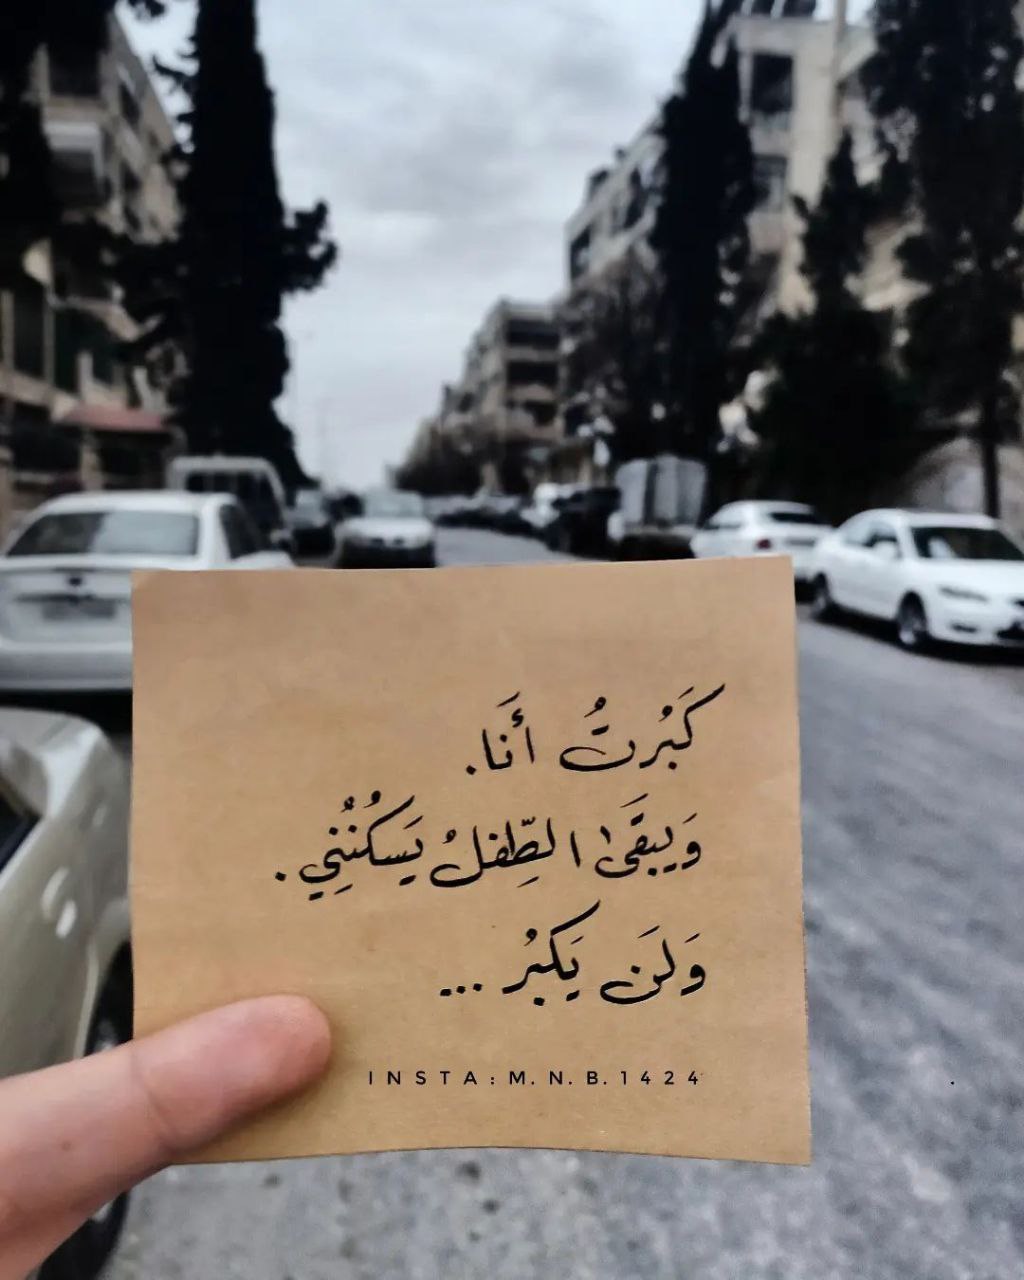 كَبُرتُ أنَا.
وَيبقَىٰ الطِّفلُ يَسكُنُنِي.
وَلَن يَكبُر ...
INSTA:M.N.B.1424